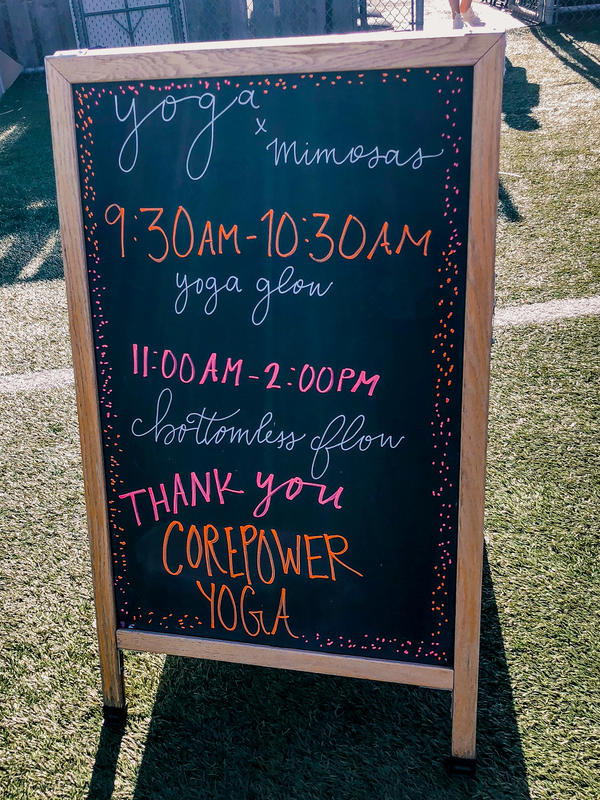 yoga
x
mimosas
9:30AM-10:30AM
yoga glow
11:00AM-2:00PM
bottomless flow
THANK you
COREPOWER
YOGA